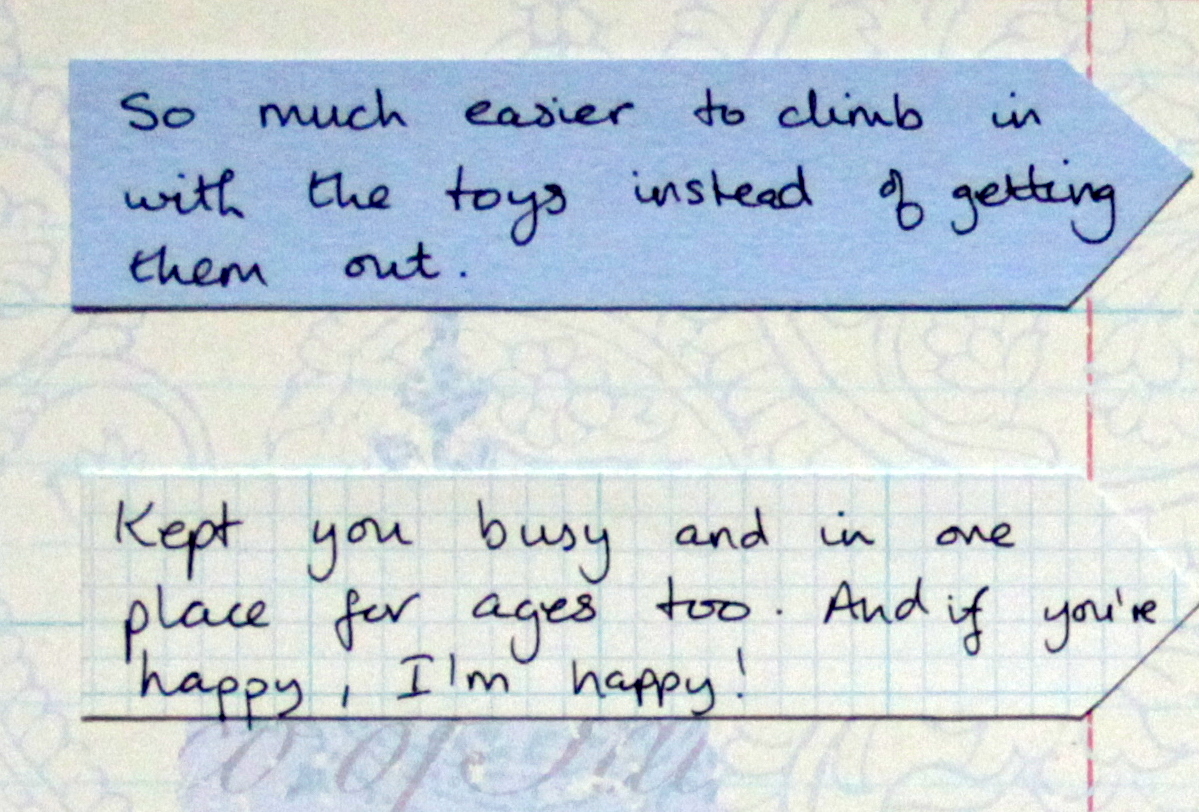 So much easier to climb in
with the toys instead of getting
them out.
Kept you busy and in one
place for ages too. And if you're
happy, I'm happy!